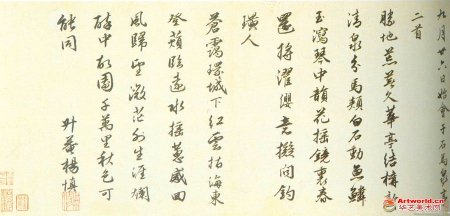 九月廿六日始會于石馬泉亭
二首
勝地荒蕪久華亭結構新
清泉分馬頰白石動魚鱗
玉瀉琴中韻花搖鏡裏春
還將濯纓意擬問釣
璜人
蒼靄環城下紅雲拈海東
登臨遠水搖蕙感回
風歸望微茫外生涯爛
醉中故園千萬里秋色可
能同
升菴楊慎
Artworld.cn